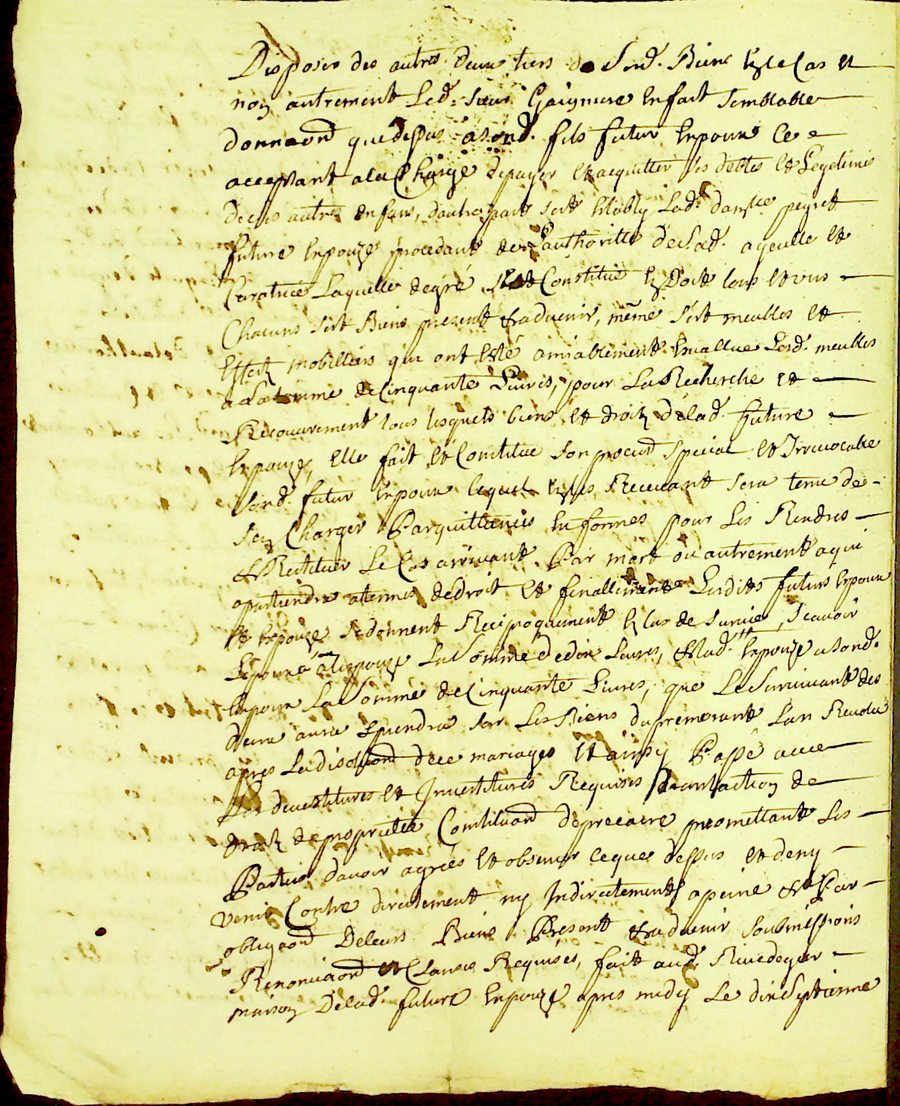 Disposer des autres deux tiers de Sesd. Biens Esd. Cas et
non autrement Led. Sieur Gaigniere En fait semblable
donnaon que dessus a sond. fils futur Espoux Ce
acceptant a la Charge de payer et acquitter ses debtes et Legitimes
de ses autres enfans, dautre part sest Establÿ Lad. peyret
future Espouze procedant de Lauthoritte de sad. ayeulle et
Curatrice Laquelle de gré sest Constitué En Dot tous et uns
Chacuns ses Biens present et aduenir, même ses meubles et
Effetz mobilliers qui ont Esté amiablement Euallue Lesd. meubles
a La somme de Cinquante Liures, pour La Recherche et
Recouurement tous lesquels biens et droitz de lad. future
Espouze, Elle fait et Constitue son procur special et Irreuocable
sond. futur Espoux lequel Receuant sera tenu de
sen Charger Par quittances En formes pour Les Rendres
et Restituer Le Cas arriuant Par mort ou autrement a qui
apartiendra a termes de droit et finallement Lesdits futurs Espoux
et Espouze se donnent Reciproquement En Cas de suruie, Scauoir
L'Epoux a l'Espouze La Somme de Liures, et lad. Espouze a sond.
Espoux La Somme de Cinquante Liures, que Le Suruiuant des
deux aura a prendre sur Les Biens du premorant L'an Reuolu
apres La disolaon de ce mariages et ainsy Passé auec
Les deuestitures et Inuestitures Requises translaction de
droitz de proprieté, Constituaon de precaire promettant Les
Parties d'auoir agrées et obseruer ce que dessus et d'en y
venir Contre directement ny Indirectement a peine et Par
obligaon De leurs Biens Present et aduenir soubmissions
Renonciaon et Clauses Requises, fait aud. Riuedegier
maison De lad. future Espouze apres midy Le dixseptieme